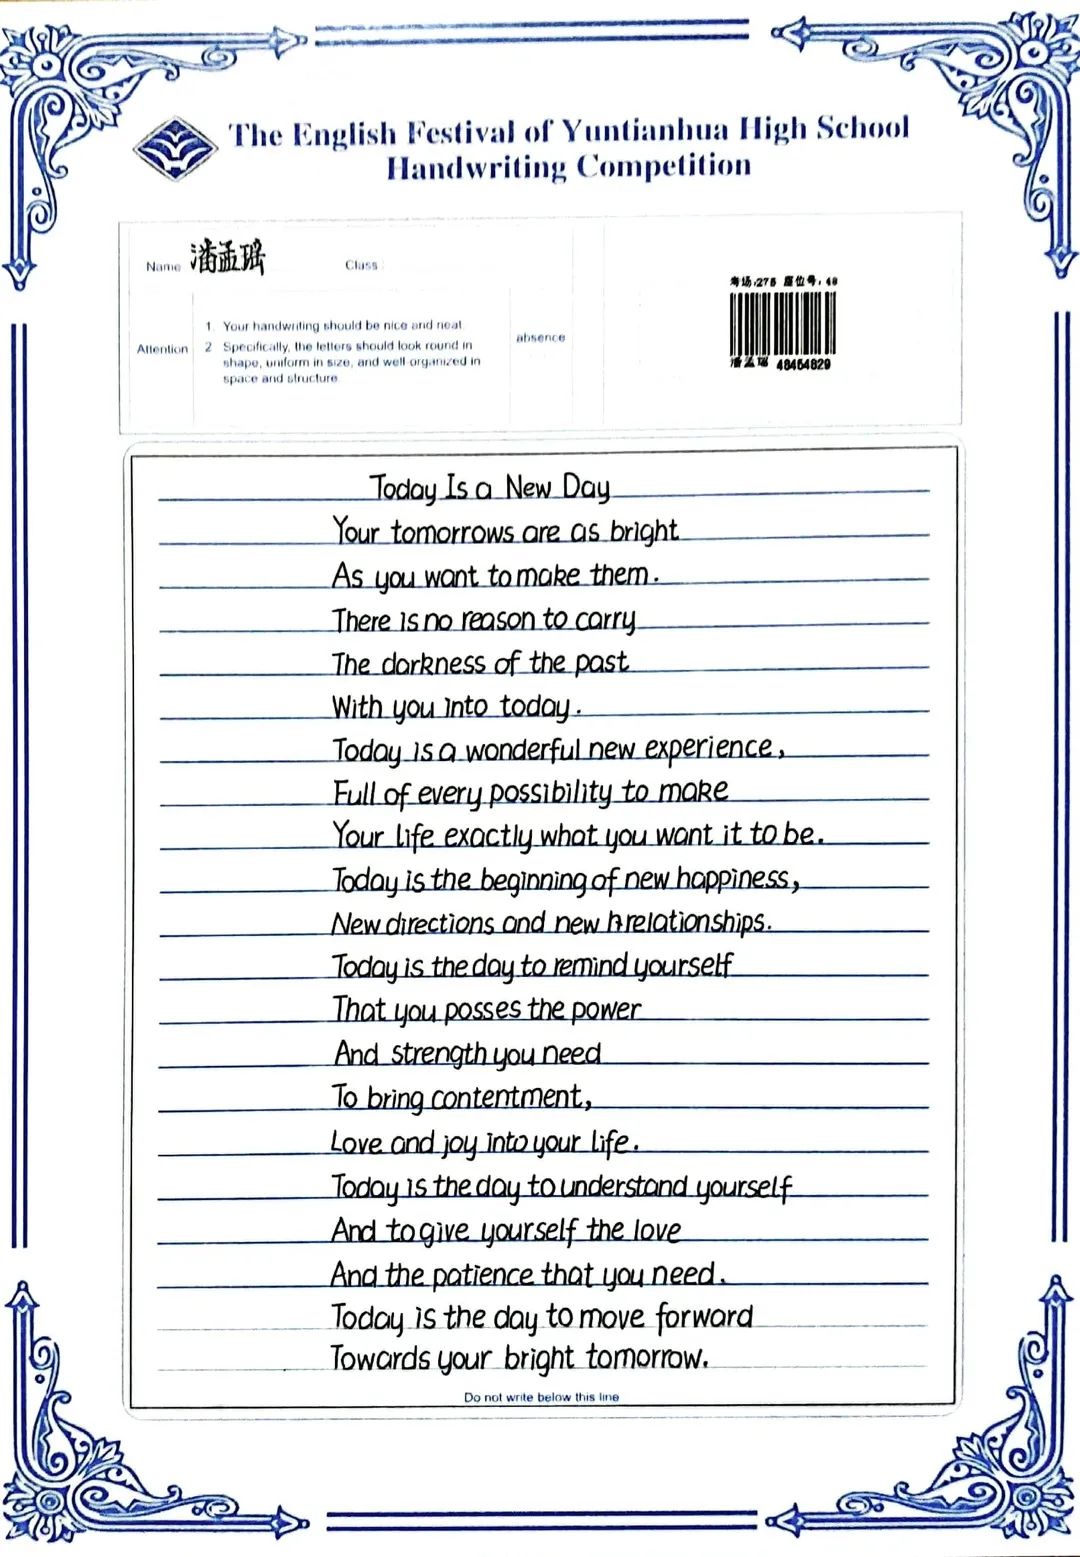 The English Festival of Yuntianhua High School
Handwriting Competition
Name 潘孟瑶 Class
考场:275 座位号:48
Attention
1 Your handwriting should be nice and neat
2 Specifically, the letters should look round in
shape, uniform in size, and well-organized in
space and structure
absence
潘孟瑶 48454829
Today Is a New Day
Your tomorrows are as bright
As you want to make them.
There is no reason to carry
The darkness of the past
With you into today.
Today is a wonderful new experience,
Full of every possibility to make
Your life exactly what you want it to be.
Today is the beginning of new happiness,
New directions and new relationships.
Today is the day to remind yourself
That you posses the power
And strength you need
To bring contentment,
Love and joy into your life.
Today is the day to understand yourself
And to give yourself the love
And the patience that you need.
Today is the day to move forward
Towards your bright tomorrow.
Do not write below this line